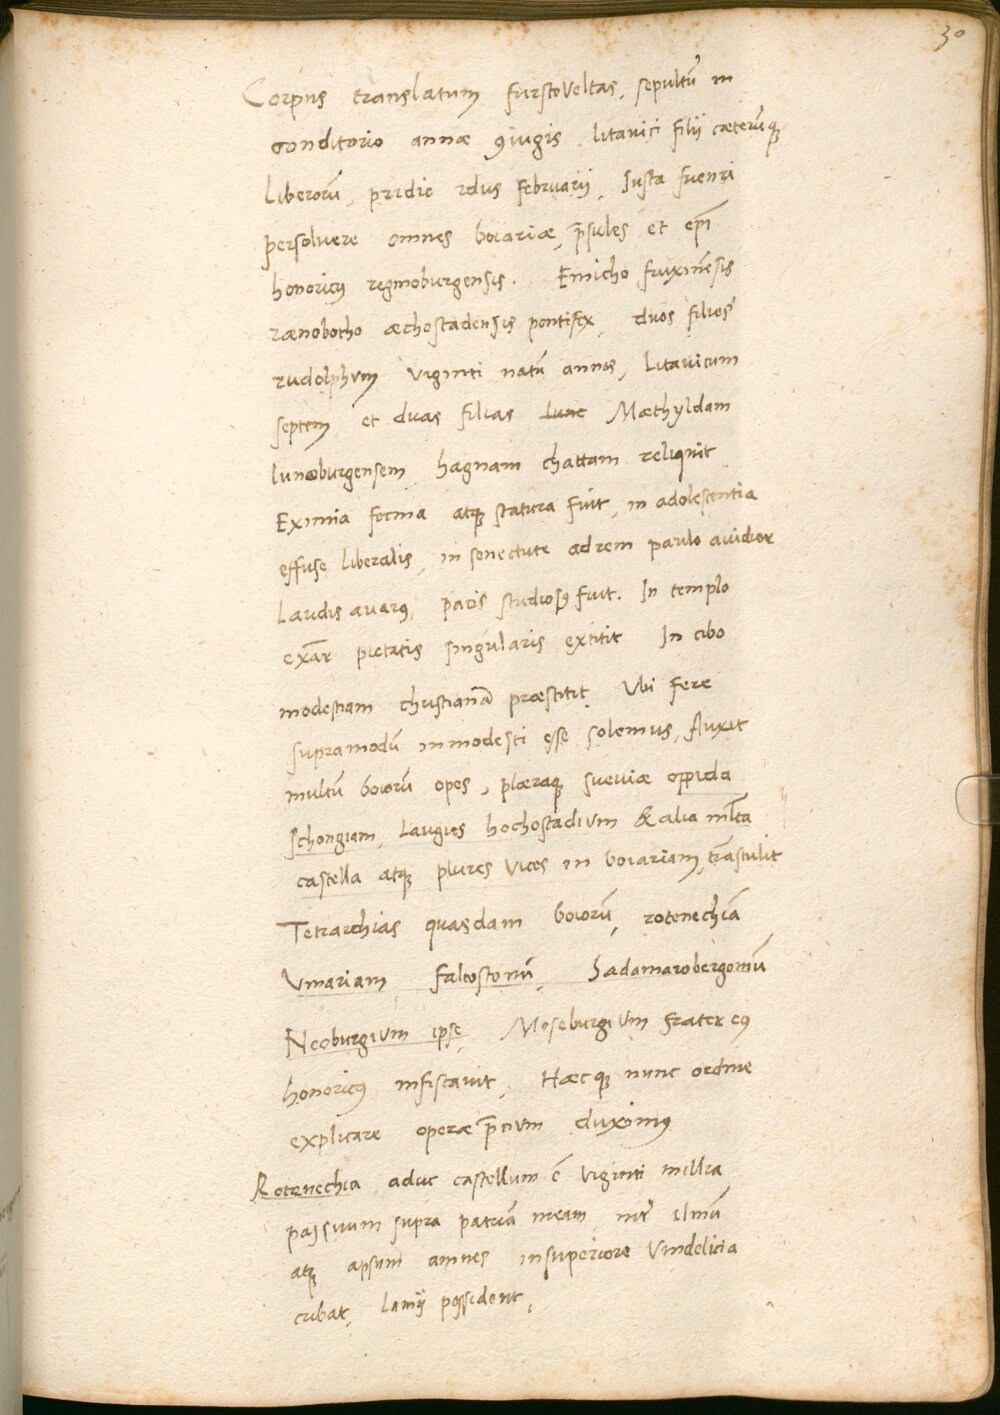 30
Corpus translatum furstoveltas, sepultũ in
conditorio annæ 9iugis litavici filij cæterũq;
liberorũ, pridie idus februarij, Justa fueri
persoluere omnes boiariæ, p̄sules et ep̄i
honoricꝰ reginoburgensis. Emicho fruxinẽsis
rænobotho æchostadensis pontifex, duos filios
rudolphum viginti natũ annos, litavicum
septem et duas filias lune Mæthyldam
lunæburgensem hagnam chattam reliquit
Eximia forma atq; statura fuit, in adolescentia
effuse liberalis, in senectute ad rem paulo avidior
laudis avarꝰ, pacis studiosꝰ fuit. In templo
exãr pietatis singularis extitit In cibo
modestiam christianã præstitit, Vbi fere
supramodũ inmodesti esse solemus, Auxit
multũ boiorũ opes, plæraq; sueviæ oppida
schongiam, laugies hochostadium & alia ml̃ta
castella atq; plures vices in boiariam, trãstulit
Tetrarchias quasdam boiorũ, rotenechiã
Vmariam falcostonũ, hadamarobergomũ
Neoburgium ipse, Moseburgium frater eꝰ
honoricꝰ infiscavit, Hæcq; nunc ordine
explicare operæ p̄cium duximꝰ
Rotenechia aduc castellum ẽ viginti millia
passuum supra patriã meam inter ilmũ
atq; apsum amnes in superiore Vindelicia
cubat, lamij possident,